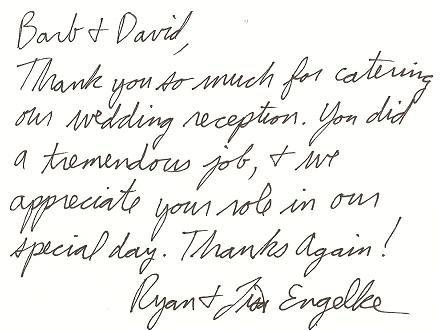 Barb + David,
Thank you so much for catering
our wedding reception. You did
a tremendous job, + we
appreciate your role in our
special day. Thanks Again!
Ryan + Engelke